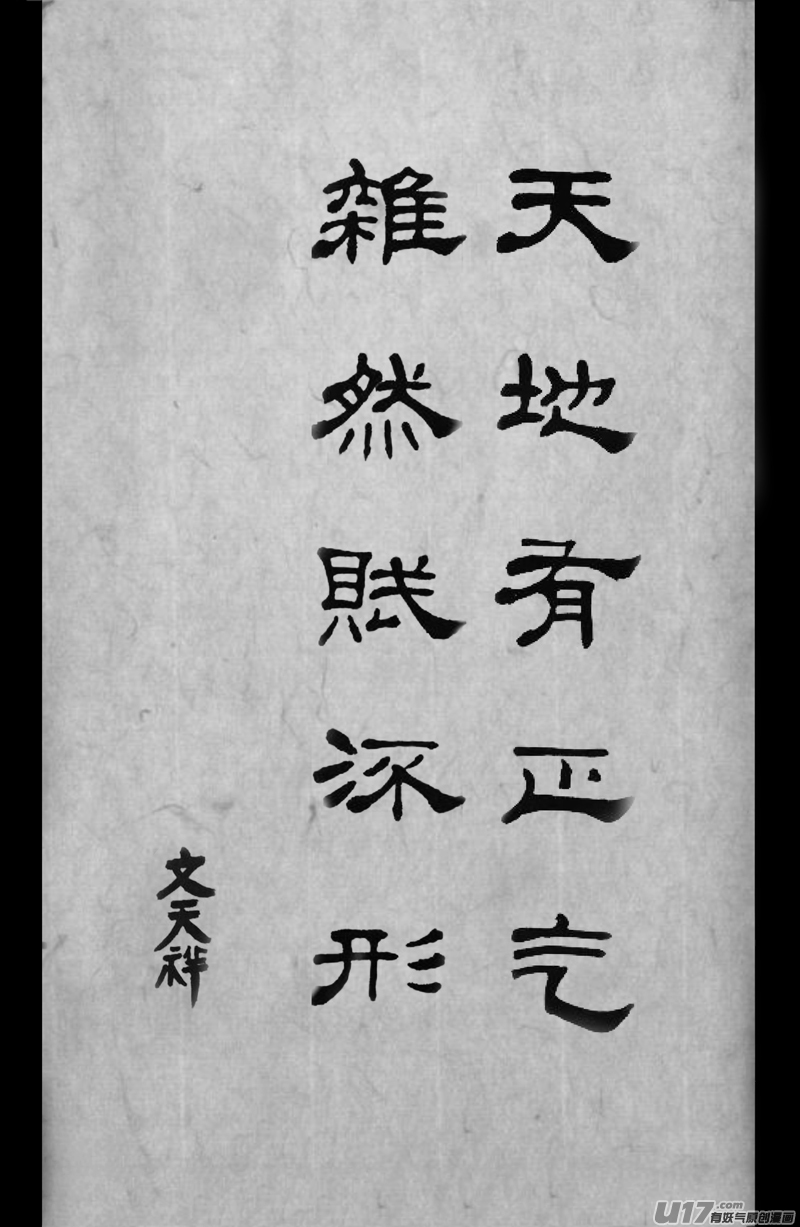 天地有正气
雜然賦流形
文天祥
U17.com 有妖气原创漫画